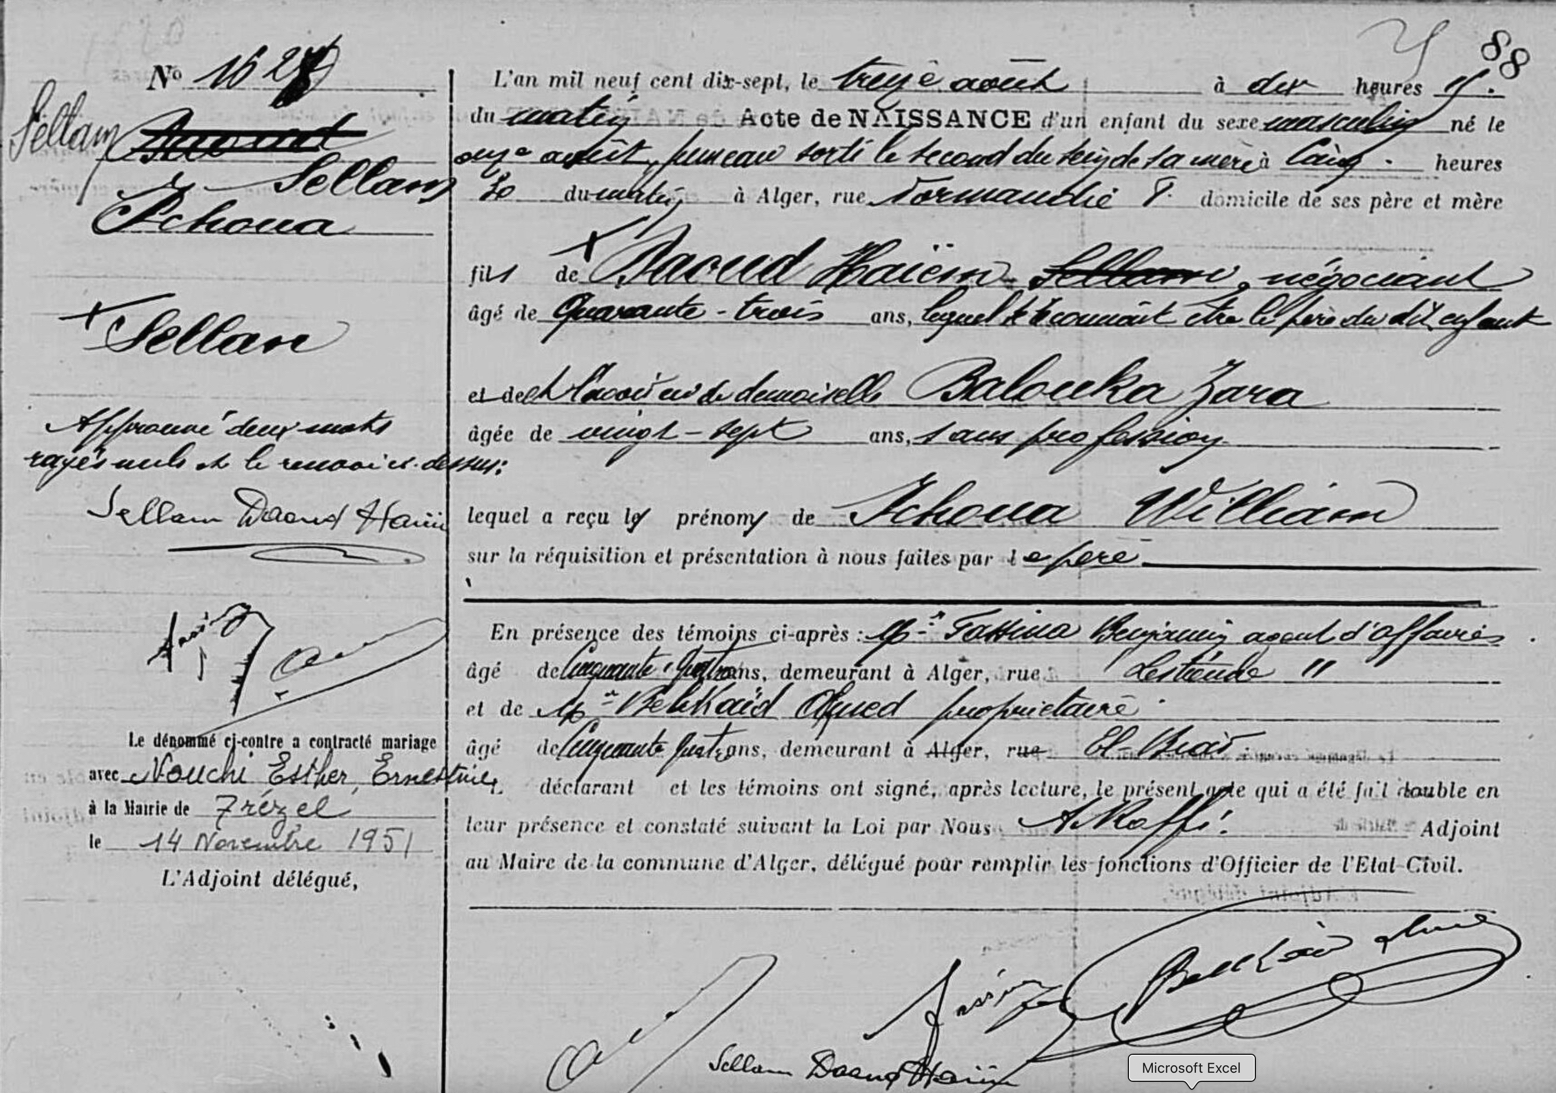 88
N° 1627
Sellam
Sellam
Ichoua
+ Sellam
Approuvé deux mots
rayés nuls et le renvoi ci-dessus:
Sellam Daoud Haïm
Le dénommé ci-contre a contracté mariage
avec Nouchi Esther, Ernestine
à la Mairie de Trézel
le 14 Novembre 1951
L'Adjoint délégué,
L'an mil neuf cent dix-sept, le treize août à dix heures
du matin Acte de NAISSANCE d'un enfant du sexe masculin né le
onze août, jumeau sorti le second du sein de sa mère à Cinq heures
du matin à Alger, rue Normandie domicile de ses père et mère
fils de + Daoud Haïem Sellam, négociant
âgé de Quarante-trois ans, lequel reconnaît être le père du dit enfant
et de demoiselle Balouka Zara
âgée de vingt-sept ans, sans profession
lequel a reçu les prénoms de Ichoua William
sur la réquisition et présentation à nous faites par le père
En présence des témoins ci-après : Benjamin agent d'affaires
âgé de Cinquante quatre ans, demeurant à Alger, rue "
et de Belkaïd Ahmed propriétaire
âgé de Cinquante quatre ans, demeurant à Alger, rue El-Biar
L déclarant et les témoins ont signé, après lecture, le présent acte qui a été fait double en
leur présence et constaté suivant la Loi par Nous Adjoint
au Maire de la commune d'Alger, délégué pour remplir les fonctions d'Officier de l'Etat-Civil.
Belkaïd Ahmed
Sellam Daoud Haïm
Microsoft Excel